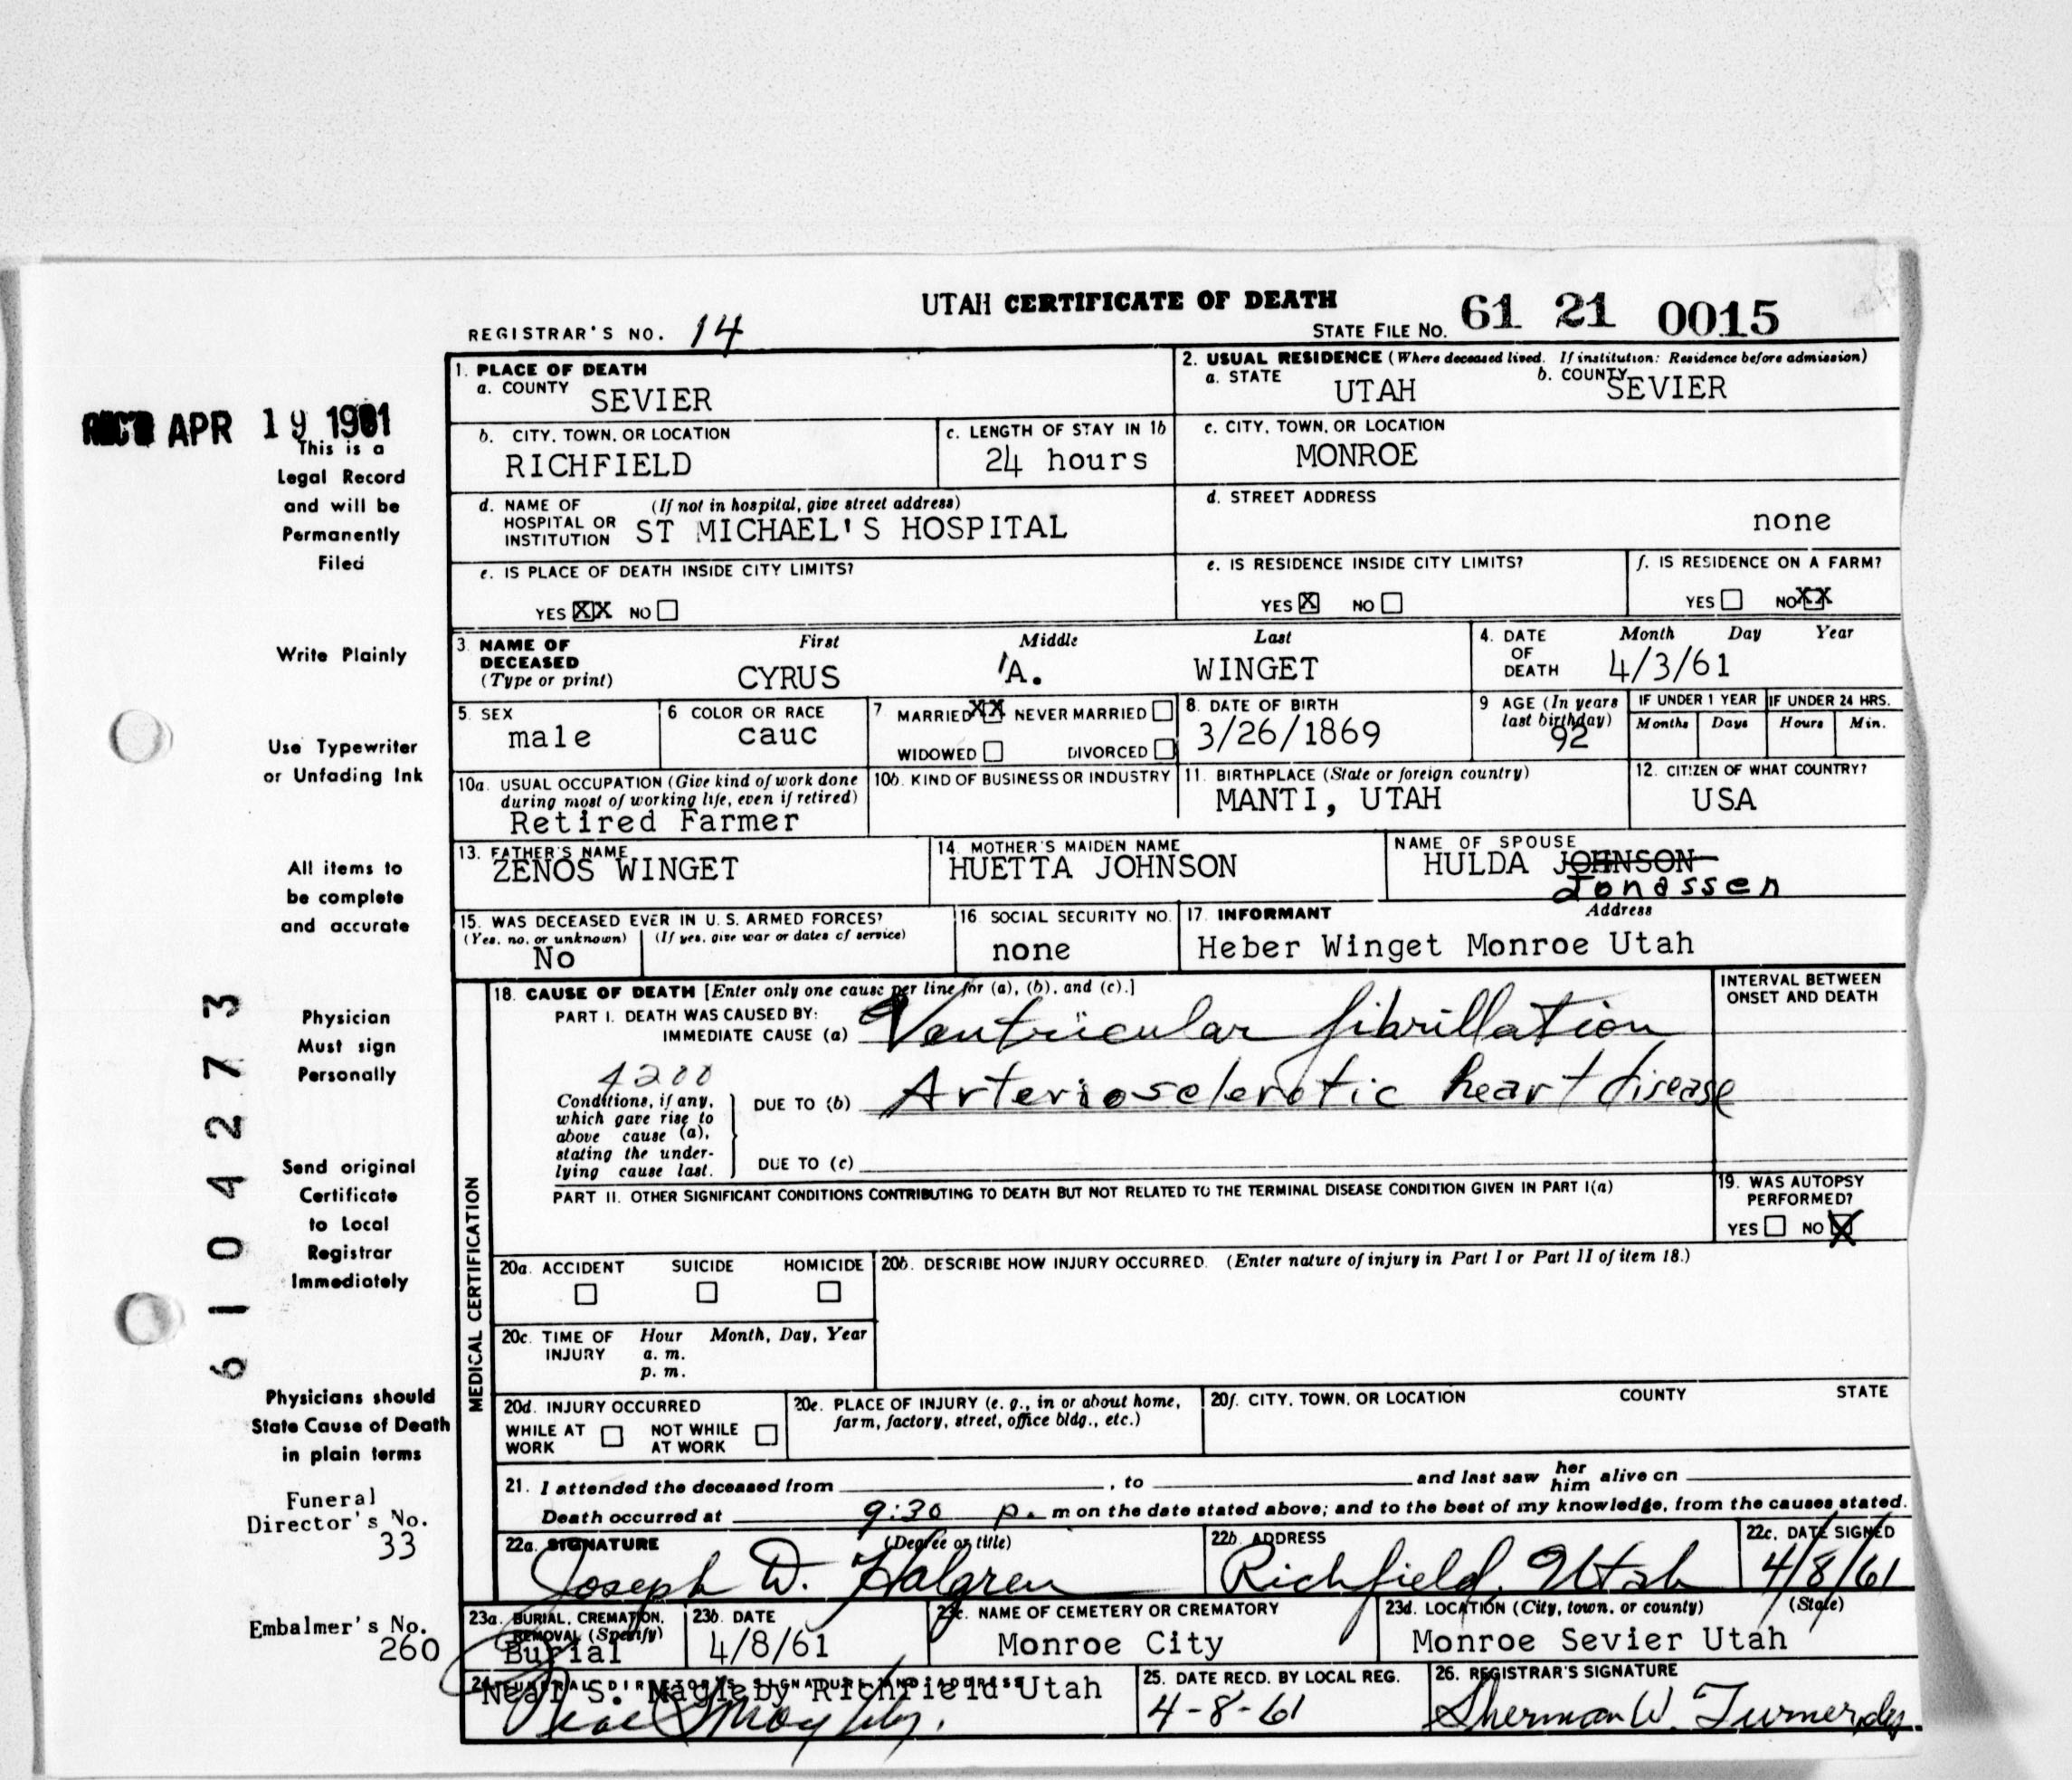 UTAH CERTIFICATE OF DEATH
REGISTRAR'S NO. 14
STATE FILE NO. 61 21 0015
REC'D APR 19 1961
This is a
Legal Record
and will be
Permanently
Filed
Write Plainly
Use Typewriter
or Unfading Ink
All items to
be complete
and accurate
Physician
Must sign
Personally
Send original
Certificate
to Local
Registrar
Immediately
Physicians should
State Cause of Death
in plain terms
Funeral
Director's No.
33
Embalmer's No.
260
6104273
1. PLACE OF DEATH
a. COUNTY SEVIER
2. USUAL RESIDENCE (Where deceased lived. If institution: Residence before admission)
a. STATE UTAH b. COUNTY SEVIER
b. CITY, TOWN, OR LOCATION
RICHFIELD
c. LENGTH OF STAY IN 1b
24 hours
c. CITY, TOWN, OR LOCATION
MONROE
d. NAME OF HOSPITAL OR INSTITUTION (If not in hospital, give street address)
ST MICHAEL'S HOSPITAL
d. STREET ADDRESS
none
e. IS PLACE OF DEATH INSIDE CITY LIMITS?
YES XX NO
e. IS RESIDENCE INSIDE CITY LIMITS?
YES X NO
f. IS RESIDENCE ON A FARM?
YES NO XX
3. NAME OF DECEASED (Type or print)
First Middle Last
CYRUS A. WINGET
4. DATE OF DEATH Month Day Year
4/3/61
5. SEX
male
6 COLOR OR RACE
cauc
7 MARRIED XX NEVER MARRIED
WIDOWED DIVORCED
8. DATE OF BIRTH
3/26/1869
9 AGE (In years last birthday)
92
IF UNDER 1 YEAR
Months Days
IF UNDER 24 HRS.
Hours Min.
10a. USUAL OCCUPATION (Give kind of work done during most of working life, even if retired)
Retired Farmer
10b. KIND OF BUSINESS OR INDUSTRY
11. BIRTHPLACE (State or foreign country)
MANTI, UTAH
12. CITIZEN OF WHAT COUNTRY?
USA
13. FATHER'S NAME
ZENOS WINGET
14. MOTHER'S MAIDEN NAME
HUETTA JOHNSON
NAME OF SPOUSE
HULDA JOHNSON
Jonassen
15. WAS DECEASED EVER IN U. S. ARMED FORCES?
(Yes, no, or unknown) (If yes, give war or dates of service)
No
16. SOCIAL SECURITY NO.
none
17. INFORMANT Address
Heber Winget Monroe Utah
MEDICAL CERTIFICATION
18. CAUSE OF DEATH [Enter only one cause per line for (a), (b), and (c).]
INTERVAL BETWEEN ONSET AND DEATH
PART I. DEATH WAS CAUSED BY:
IMMEDIATE CAUSE (a) Ventricular fibrillation
4200
Conditions, if any, which gave rise to above cause (a), stating the underlying cause last.
DUE TO (b) Arteriosclerotic heart disease
DUE TO (c)
PART II. OTHER SIGNIFICANT CONDITIONS CONTRIBUTING TO DEATH BUT NOT RELATED TO THE TERMINAL DISEASE CONDITION GIVEN IN PART I(a)
19. WAS AUTOPSY PERFORMED?
YES NO X
20a. ACCIDENT SUICIDE HOMICIDE
20b. DESCRIBE HOW INJURY OCCURRED. (Enter nature of injury in Part I or Part II of item 18.)
20c. TIME OF INJURY Hour Month, Day, Year
a. m.
p. m.
20d. INJURY OCCURRED
WHILE AT WORK NOT WHILE AT WORK
20e. PLACE OF INJURY (e. g., in or about home, farm, factory, street, office bldg., etc.)
20f. CITY, TOWN, OR LOCATION COUNTY STATE
21. I attended the deceased from , to and last saw her him alive on
Death occurred at 9:30 p. m on the date stated above; and to the best of my knowledge, from the causes stated.
22a. SIGNATURE (Degree or title)
Joseph D. Halgren
22b. ADDRESS
Richfield, Utah
22c. DATE SIGNED
4/8/61
23a. BURIAL, CREMATION, REMOVAL (Specify)
Burial
23b. DATE
4/8/61
23c. NAME OF CEMETERY OR CREMATORY
Monroe City
23d. LOCATION (City, town, or county) (State)
Monroe Sevier Utah
24. FUNERAL DIRECTOR'S SIGNATURE AND ADDRESS
Neal S. Magleby Richfield Utah
Neal S Magleby.
25. DATE RECD. BY LOCAL REG.
4-8-61
26. REGISTRAR'S SIGNATURE
Sherman W. Turner, dy.